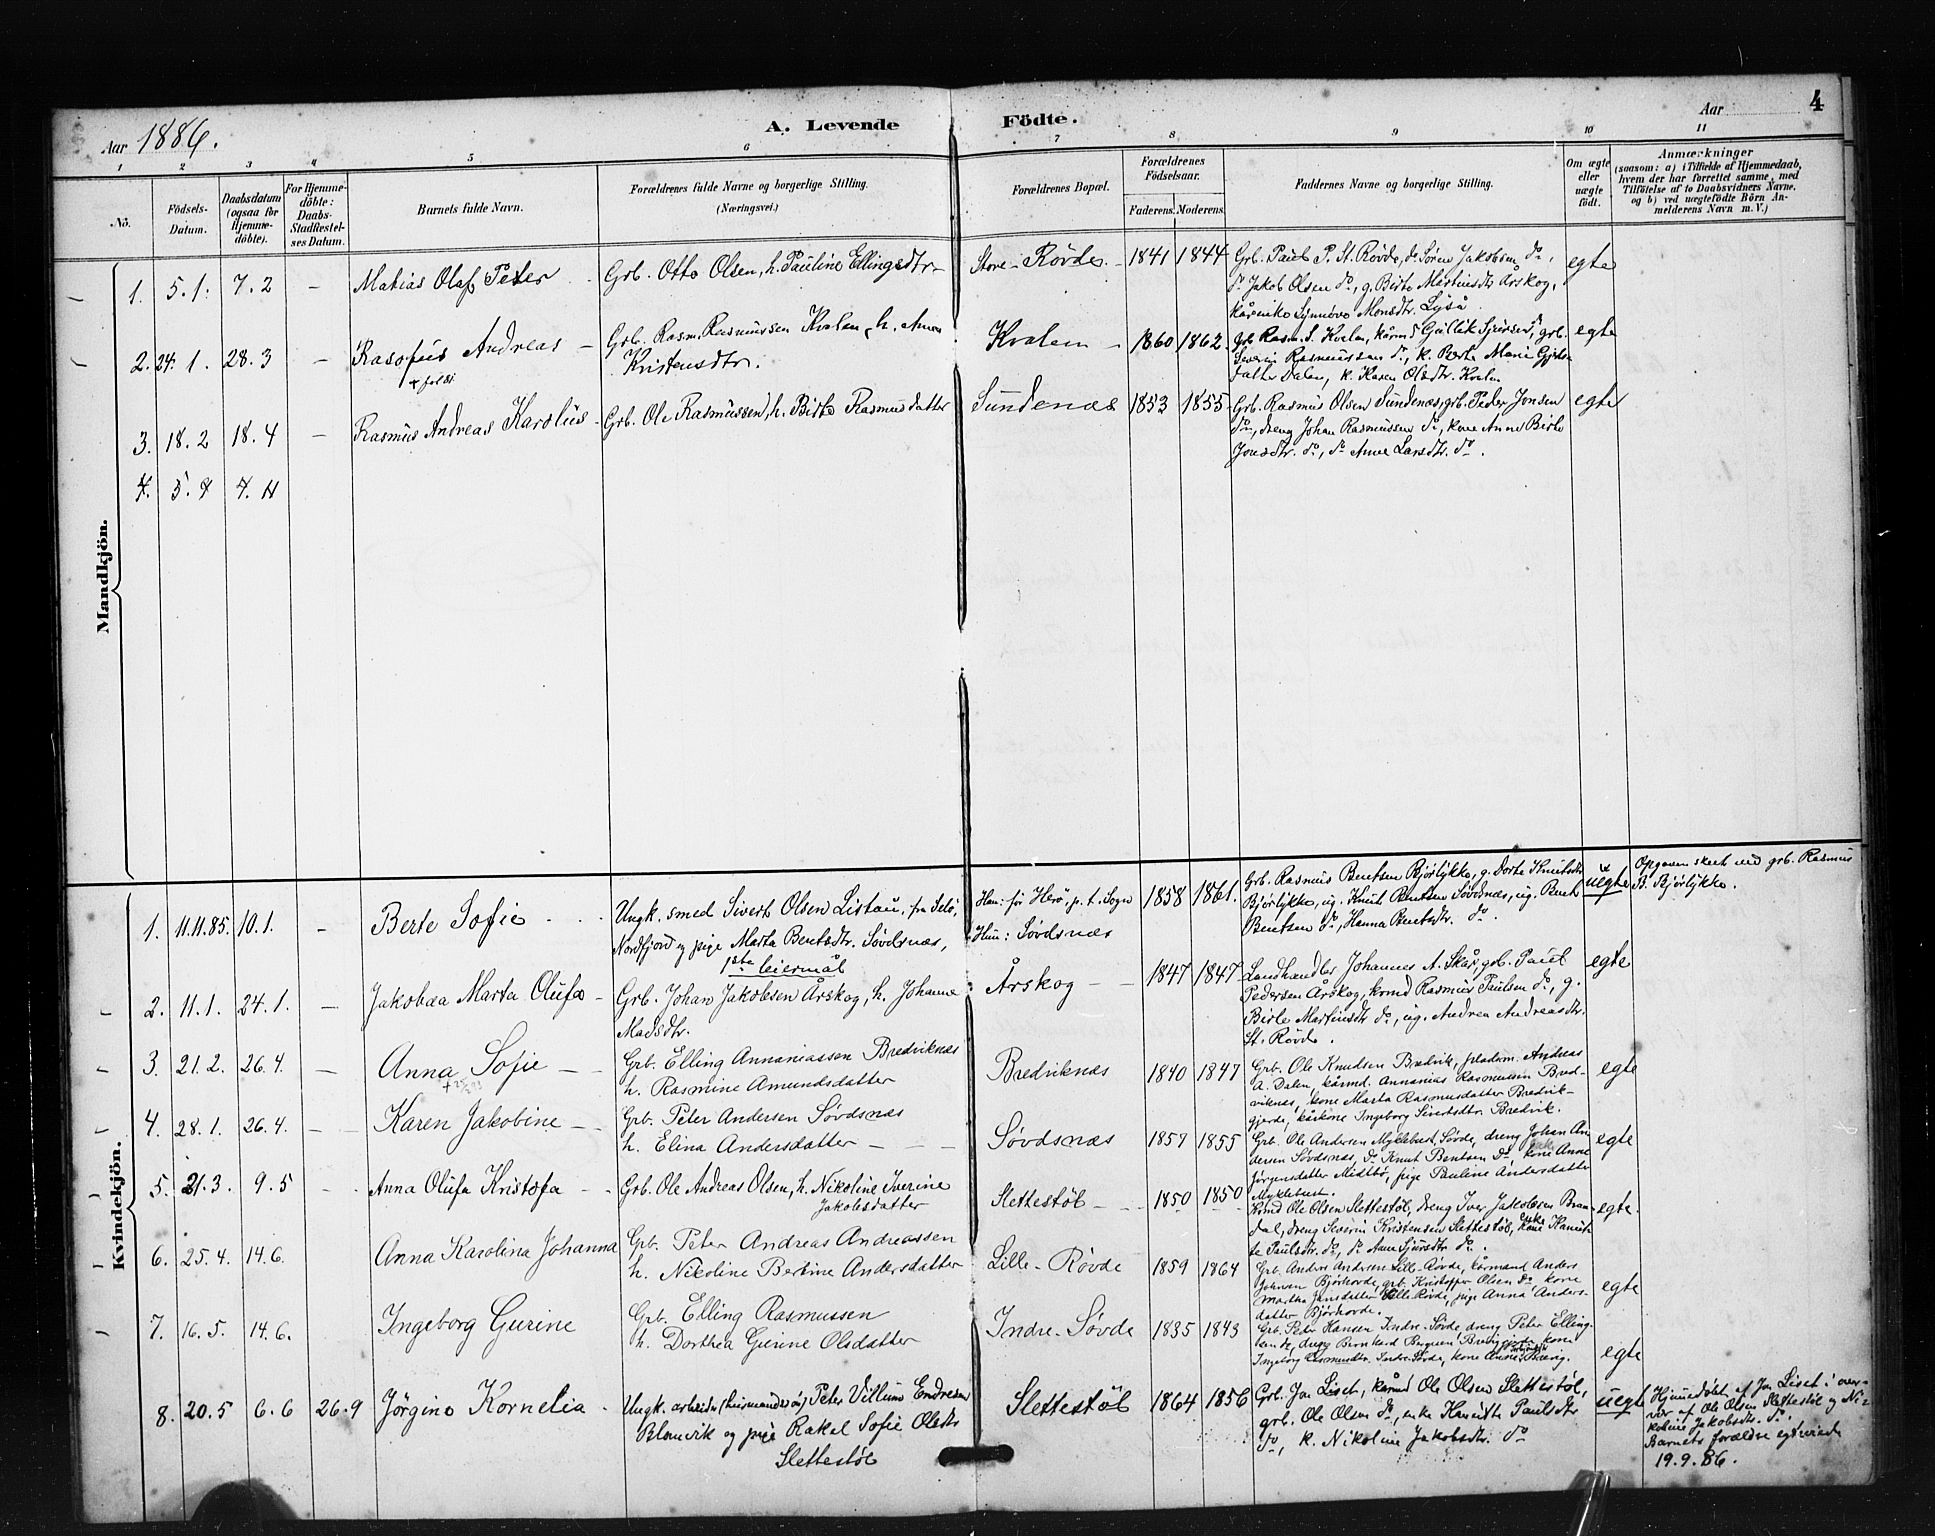 Aar 1886.
A. Levende Födte.
Aar
4
1 2 3 4 5 6 7 8 9 10 11
No.
Födsels-Datum.
Daabsdatum (ogsaa for Hjemmedöbte).
For Hjemmedöbte: Daabs-Stadfestelses Datum.
Barnets fulde Navn.
Forældrenes fulde Navne og borgerlige Stilling.
(Næringsvei.)
Forældrenes Bopæl.
Forældrenes Födselsaar.
Faderens. Moderens.
Faddernes Navne og borgerlige Stilling.
Om ægte eller uægte födt.
Anmærkninger
(saasom: a) i Tilfælde af Hjemmedaab,
hvem der har forrettet samme, med
Tilföielse af to Daabsvidners Navne,
og b) ved uægtefödte Börn An-
melderens Navn m. V.)
Mandkjön.
1. 5.1. 7.2 – Matias Olaf Peter – Grb. Otto Olsen, h. Pauline Ellingsdtr – Store-Røvde – 1841 1844
Grb. Paul P. St. Røvde, do Søren Jakobsen do,
do Jakob Olsen do, g. Birte Martinsdtr Årskog,
Synnøve Monsdtr.
egte
2. 24.1. 28.3 – Rasofus Andreas – Grb. Rasm. Rasmussen Kvalen, h. Anne
Kristensdtr.
Kvalen – 1860 1862
Grb Rasm. S. Kvalen, kårmd Gullik Sjursen do, grb.
Severin Rasmussen do, k. Berte Marie
datter Dalen, k. Karen Olsdtr. Kvalen
egte
3. 18.2 18.4 – Rasmus Andreas Karolius – Grb. Ole Rasmussen, h. Birte Rasmusdatter Sundenæs 1853 1855
Grb. Rasmus Olsen Sundenæs, grb. Peder Jonsen
do, dreng Johan Rasmussen do, kone Anne Birte
Jonsdtr. do, do Anne Larsdtr. do.
egte
4. 5.4
Kvindekjön.
1. 11.11.85. 10.1. – Berte Sofie Ungk. smed Sivert Olsen Listau, fra Selö,
Nordfjord og pige Marta Bentsdtr. Søvdsnæs,
1ste leiermål
Han: før Herö, p.t. Sogn
Hun: Søvdsnæs
1858 1861.
Grb. Rasmus Bentsen Bjørlykke, g. Dorte Knutsdtr
Bjørlykke, ug. Knut Bentsen Søvdsnæs, ug. Bent
Bentsen do, Hanna Bentsdtr. do.
uegte
Opgaven skeet ved grb. Rasmus
B. Bjørlykke.
2. 11.1. 24.1. – Jakobæa Marta Olufa – Grb. Johan Jakobsen Årskog, h. Johanne
Madsdtr.
Årskog – 1847 1847
Landhandler Johannes A. Skår, grb. Paul
Pedersen Årskog, kårmd Rasmus Paulsen do, g.
Birte Martinsdtr do, ug. Andrea Andreasdtr.
St. Røvde.
egte
3. 21.2. 26.4. – Anna Sofie – Grb. Elling Annaniassen Bredviknæs
h. Rasmine Amundsdatter
Bredviknæs 1840 1847
Grb. Ole Knudsen Bredvik, pladsm. Andreas
A. Dalen, kårmd. Annanias Rasmussen Bred-
viknæs, kone Marta Rasmusdatter Bredvik-
gjerde, kårkone Ingeborg Sivertsdtr. Bredvik.
egte
4. 28.1. 26.4. – Karen Jakobine – Grb. Peter Andersen Søvdsnæs
h. Elina Andersdatter –
Søvdsnæs 1857 1855
Grb. Ole Andersen Myklebust, Søvde, dreng Johan An-
dersen Søvdsnæs, do Knut Bentsen do, kone Anne
Jörgensdatter Midtbö, pige Pauline Andersdatter
Myklebust.
egte
5. 21.3. 9.5 – Anna Olufa Kristofa – Grb. Ole Andreas Olsen, h. Nikoline Iverine
Jakobsdatter
Slettestöl – 1850 1850
Krmd Ole Olsen Slettestöl, dreng Iver Jakobsen Bran-
dal, dreng Severin Kristensen Slettestöl, enke Hanrit-
te Paulsdtr. do, do Anne Sjursdtr do.
egte.
6. 25.4. 14.6. Anna Karolina Johanna Grb. Peter Andreas Andreassen
h. Nikoline Bertine Andersdatter
Lille-Røvde 1859 1864
Grb. Anders Andersen Lille-Røvde, kårmand Anders
Johnsen Bjørhovde, grb. Kristoffer Olsen do, kone
Martha Jansdatter Lille-Røvde, pige Anna Anders-
datter Bjørhovde.
egte
7. 16.5. 14.6. Ingeborg Gurine Grb. Elling Rasmussen
h. Dorthea Gurine Olsdatter
Indre-Søvde 1835 1843
Grb. Peter Hansen Indre-Søvde, dreng Peter Elling-
sen do, dreng Bernhard kone
Ingeborg Indre-Søvde, kone Anne
egte
8. 20.5 6.6 26.9 Jörgine Kornelia – Ungk. arbeider Peter Villum Endresen
Blomvik og pige Rakel Sofie Olsdtr
Slettestöl
Slettestöl 1864 1856
Grb. Jon Liset, kårmd Ole Olsen Slettestöl,
grb. Ole Olsen do, enke Hanritte Paulsdtr
do, k. Nikoline Jakobsdtr. do
uegte
Hjemmedöbt af Jon Liset i over-
vær af Ole Olsen Slettestöl og Ni-
koline Jakobsdtr. do.
Barnets forældre egteviede
19.9.86.